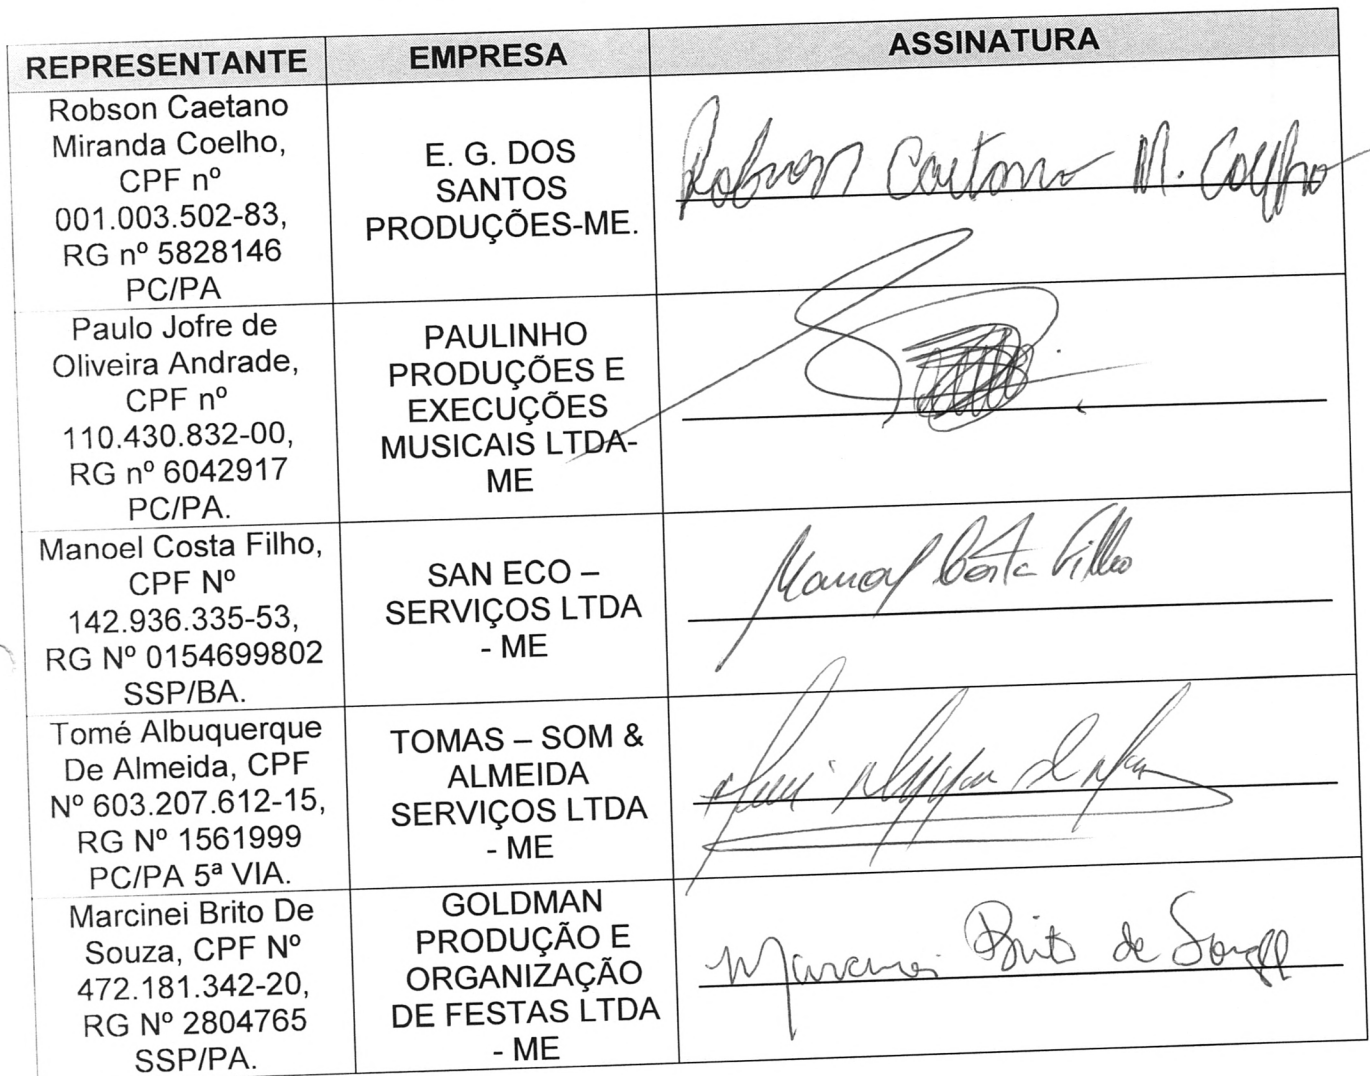 REPRESENTANTE EMPRESA ASSINATURA
Robson Caetano
Miranda Coelho,
CPF nº
001.003.502-83,
RG nº 5828146
PC/PA
E. G. DOS
SANTOS
PRODUÇÕES-ME.
Robson Caetano M. Coelho
Paulo Jofre de
Oliveira Andrade,
CPF nº
110.430.832-00,
RG nº 6042917
PC/PA.
PAULINHO
PRODUÇÕES E
EXECUÇÕES
MUSICAIS LTDA-
ME
Manoel Costa Filho,
CPF Nº
142.936.335-53,
RG Nº 0154699802
SSP/BA.
SAN ECO –
SERVIÇOS LTDA
- ME
Manoel Costa Filho
Tomé Albuquerque
De Almeida, CPF
Nº 603.207.612-15,
RG Nº 1561999
PC/PA 5ª VIA.
TOMAS – SOM &
ALMEIDA
SERVIÇOS LTDA
- ME
Marcinei Brito De
Souza, CPF Nº
472.181.342-20,
RG Nº 2804765
SSP/PA.
GOLDMAN
PRODUÇÃO E
ORGANIZAÇÃO
DE FESTAS LTDA
- ME
Marcinei Brito de Souza